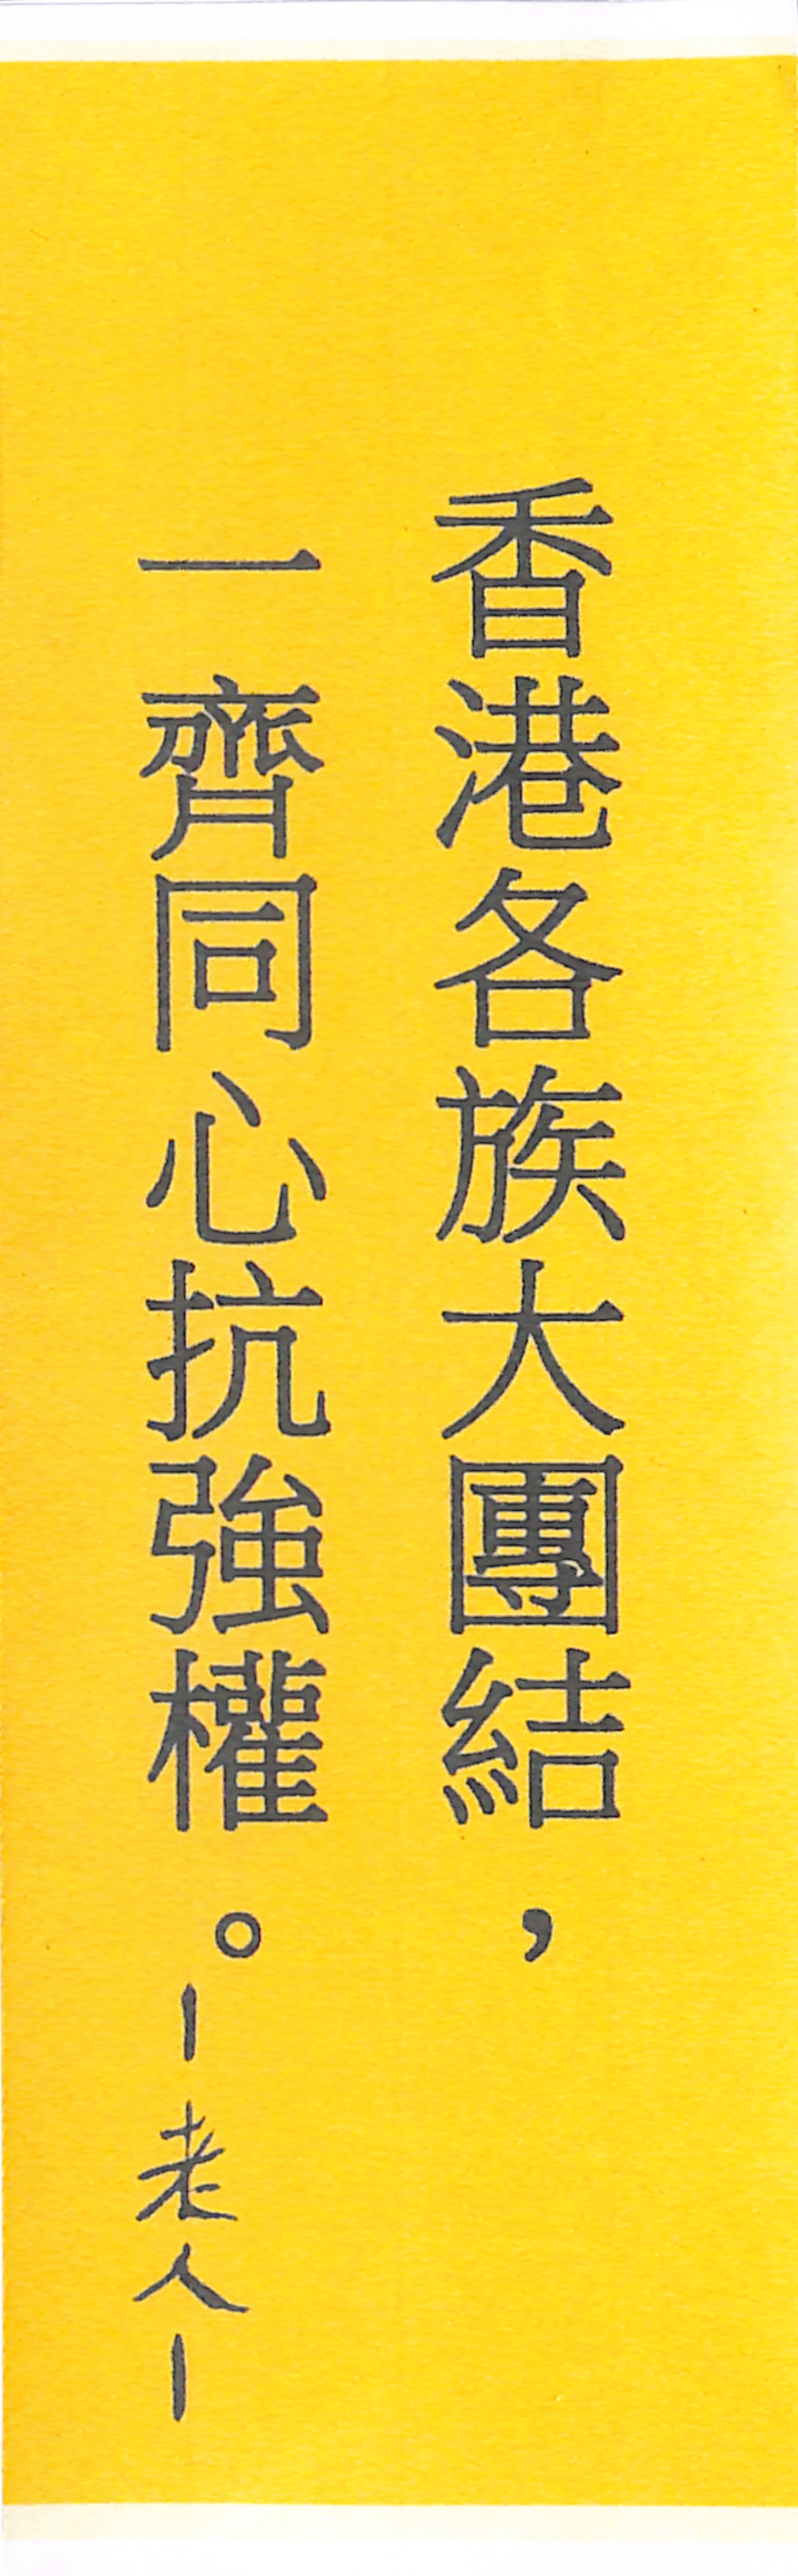 香港各族大團結，
一齊同心抗強權。
—老人—